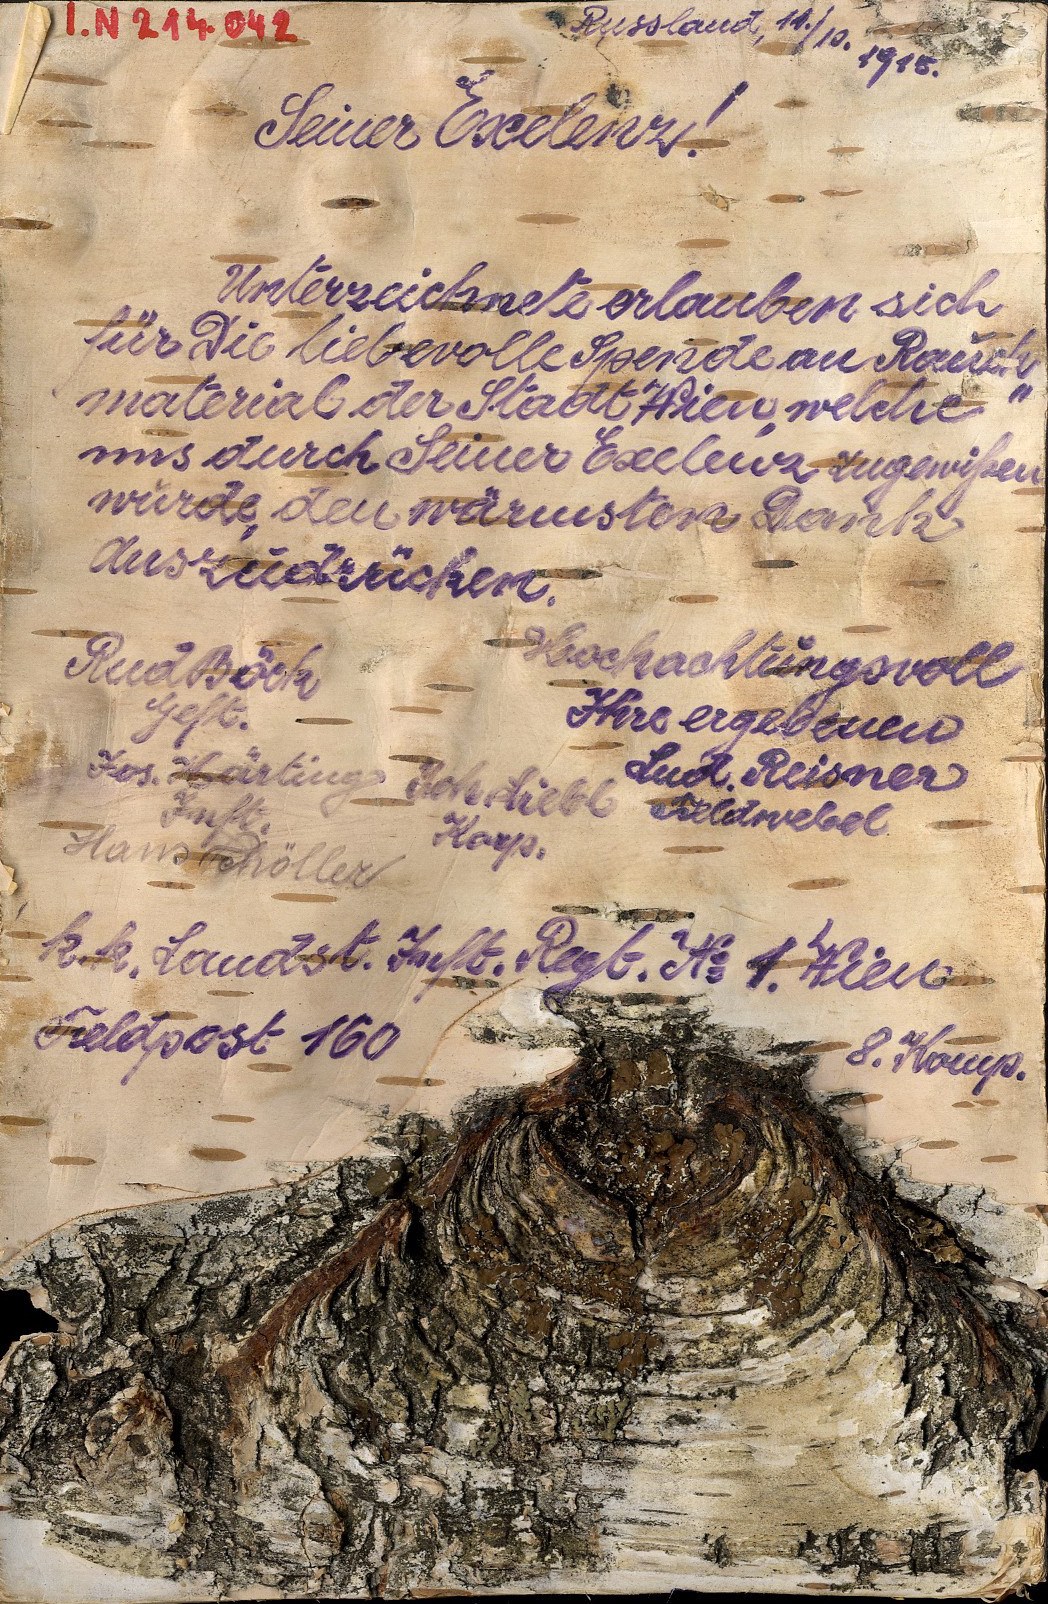 I.N 214.042
Russland, 11./10.
1915.
Seiner Exelenz!
Unterzeichnete erlauben sich
für Die liebevolle Spende an Rauch"
material der Stadt Wien, welche
uns durch Seiner Exelenz zugewißen
würde, den wärmsten Dank
auszudrücken.
Hochachtungsvoll
Ihre ergebenen
Rud Böck
Geft.
Lud. Reisner
Feldwebel
Jos. Härting
Inft.
Joh Liebl
Korp.
Hans Schöller
k.k. Landst. Inft. Regt. № 1. Wien
Feldpost 160
8. Komp.